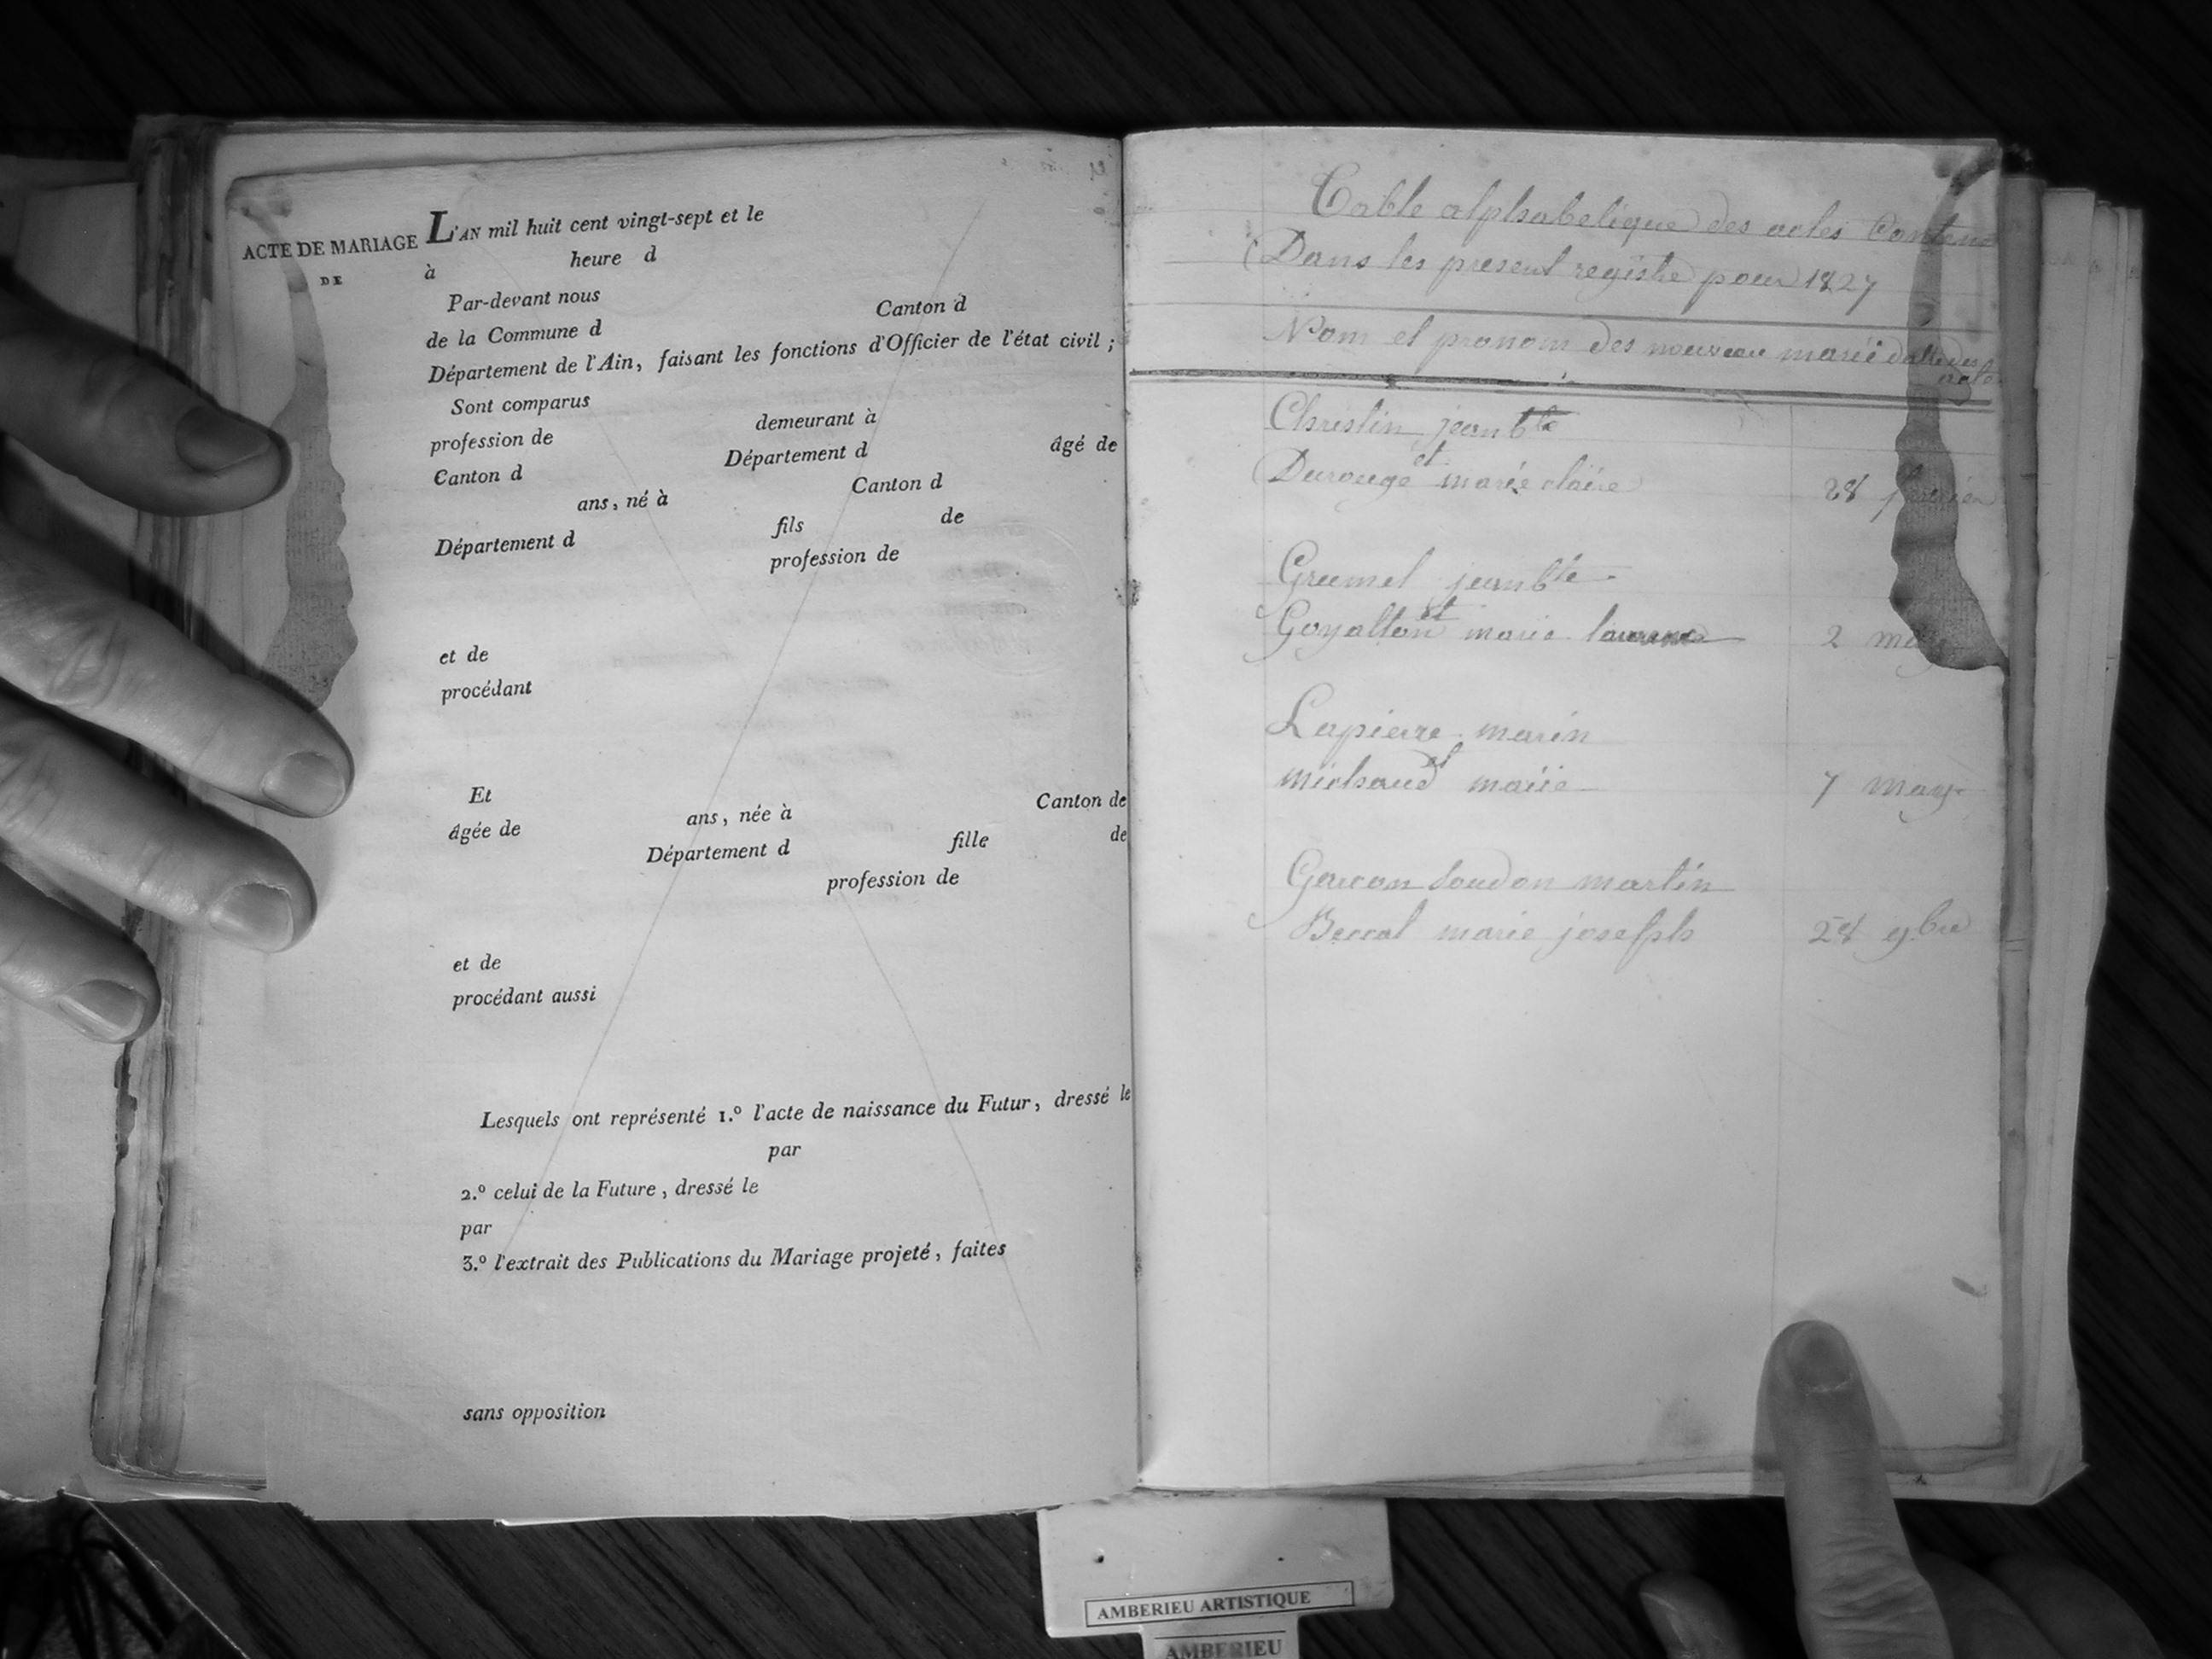 ACTE DE MARIAGE
DE
L'AN mil huit cent vingt-sept et le
à heure d
Par-devant nous
de la Commune d Canton d
Département de l'Ain, faisant les fonctions d'Officier de l'état civil ;
Sont comparus
profession de demeurant à
Canton d Département d âgé de
ans, né à Canton d
Département d fils de
profession de
et de
procédant
Et
âgée de ans, née à Canton de
Département d fille de
profession de
et de
procédant aussi
Lesquels ont représenté 1.º l'acte de naissance du Futur, dressé le
par
2.º celui de la Future, dressé le
par
3.º l'extrait des Publications du Mariage projeté, faites
sans opposition
Table alphabetique des actes Contenu
Dans les present registre pour 1827
Nom et pronom des nouveau marié datte des
acte
Christin jean bte
et
Durouge marie claire 28 fevrier
Grumel jean bte
et
Goyatton marie 2 may
Lapierre marin
et
michaud marie 7 may
martin
marie joseph 28 9bre
AMBERIEU ARTISTIQUE
AMBERIEU